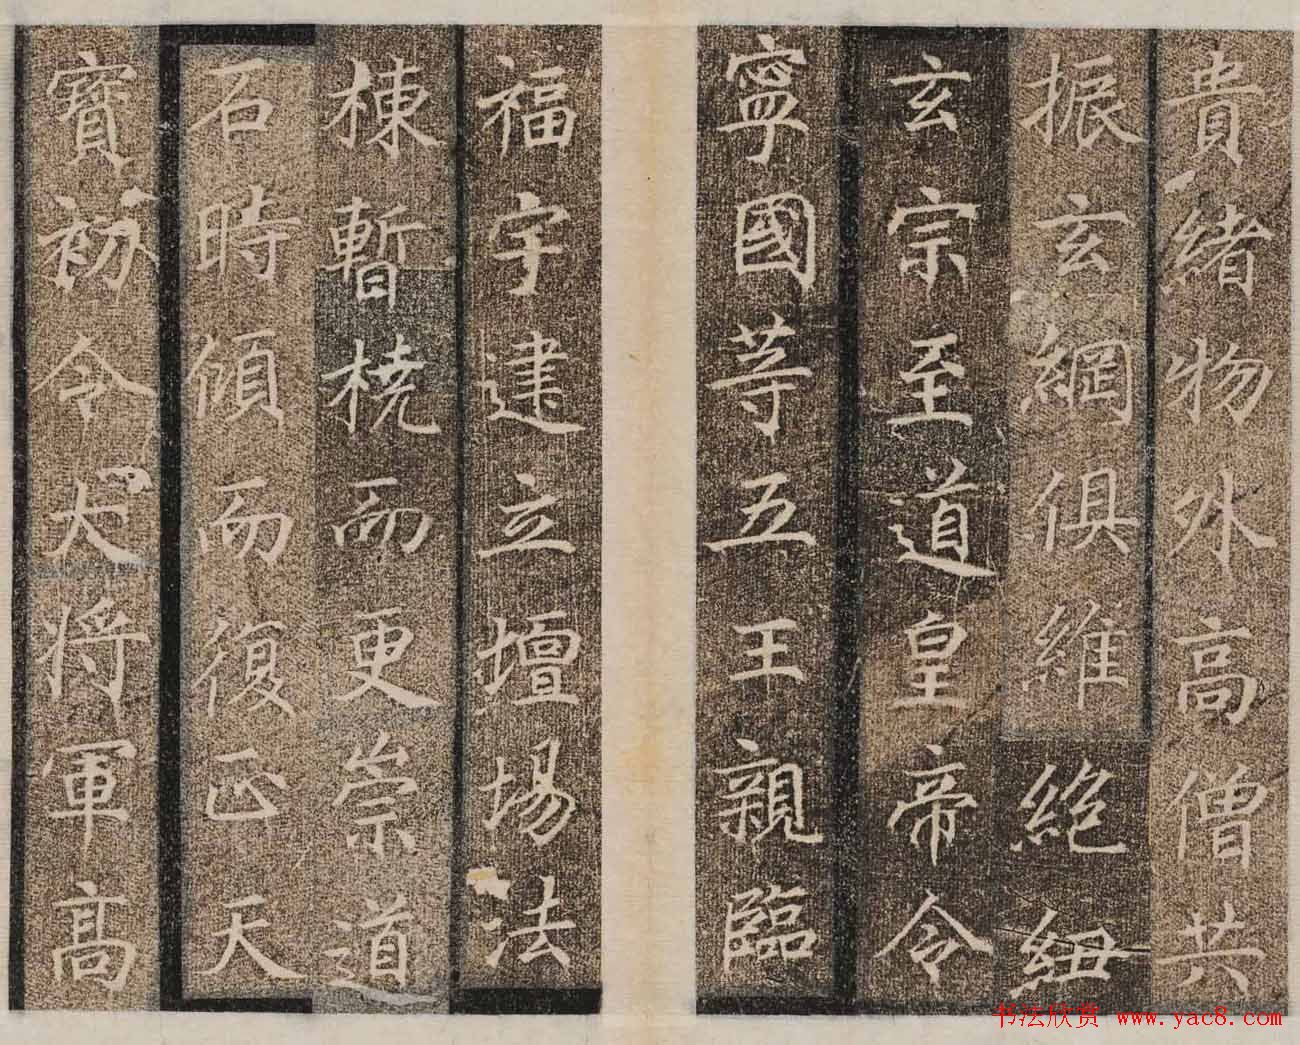 貴緒物外高僧共
振玄綱俱維絶紐
玄宗至道皇帝令
寧國等五王親臨
福宇建立壇場法
棟暫橈而更崇道
石時傾而復正天
寶初令大將軍高
书法欣赏 www.yac8.com